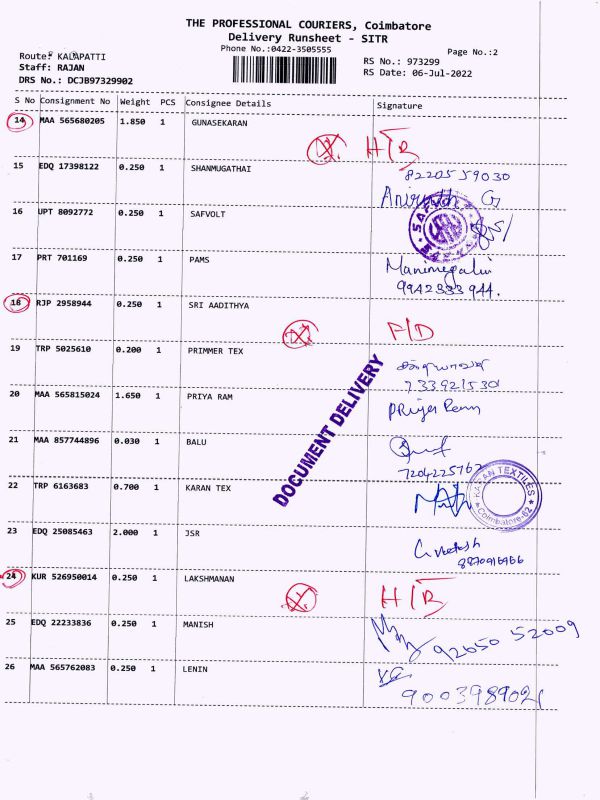 THE PROFESSIONAL COURIERS, Coimbatore
Delivery Runsheet - SITR
Phone No.:0422-3505555
Page No.:2
Route: KALAPATTI
Staff: RAJAN
DRS No.: DCJB97329902
RS No.: 973299
RS Date: 06-Jul-2022
S No Consignment No Weight PCS Consignee Details Signature
14 MAA 565680205 1.850 1 GUNASEKARAN
15 EDQ 17398122 0.250 1 SHANMUGATHAI 8220559030
16 UPT 8092772 0.250 1 SAFVOLT
17 PRT 701169 0.250 1 PAMS Manimegalai
9942333944.
18 RJP 2958944 0.250 1 SRI AADITHYA F/D
19 TRP 5025610 0.200 1 PRIMMER TEX
733921530
20 MAA 565815024 1.650 1 PRIYA RAM Priya Ram
DOCUMENT DELIVERY
21 MAA 857744896 0.030 1 BALU
7204225762
22 TRP 6163683 0.700 1 KARAN TEX
KARAN TEXTILES
Coimbatore-62
23 EDQ 25085463 2.000 1 JSR
24 KUR 526950014 0.250 1 LAKSHMANAN
25 EDQ 22233836 0.250 1 MANISH 92650 52009
26 MAA 565762083 0.250 1 LENIN
9003989021